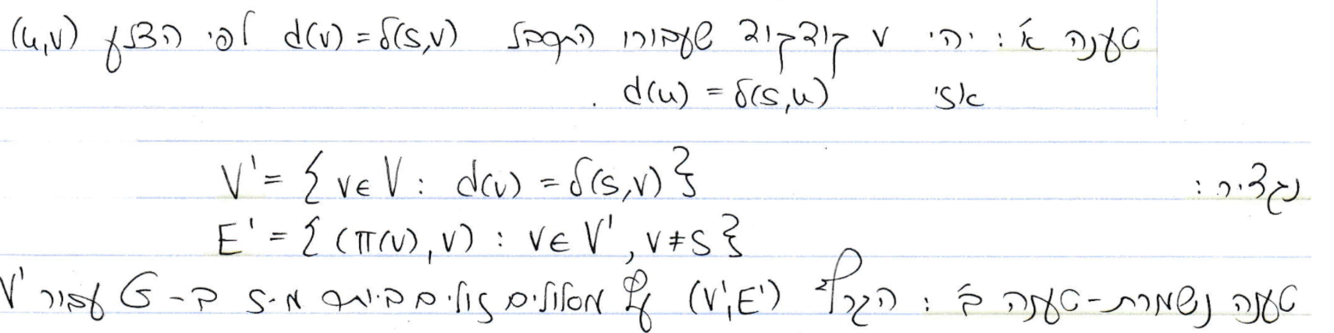 טענה א': יהי v קודקוד שעבורו התקבל d(v) = δ(s,v) לפי הצלע (u,v)
אזי d(u) = δ(s,u) .
נגדיר: V' = { v∈V : d(v) = δ(s,v) }
E' = { (π(v), v) : v∈V', v≠s }
טענה נשמרת - טענה ב': הגרף (V',E') עץ מסלולים קלים ביותר מ-s ב-G עבור V'